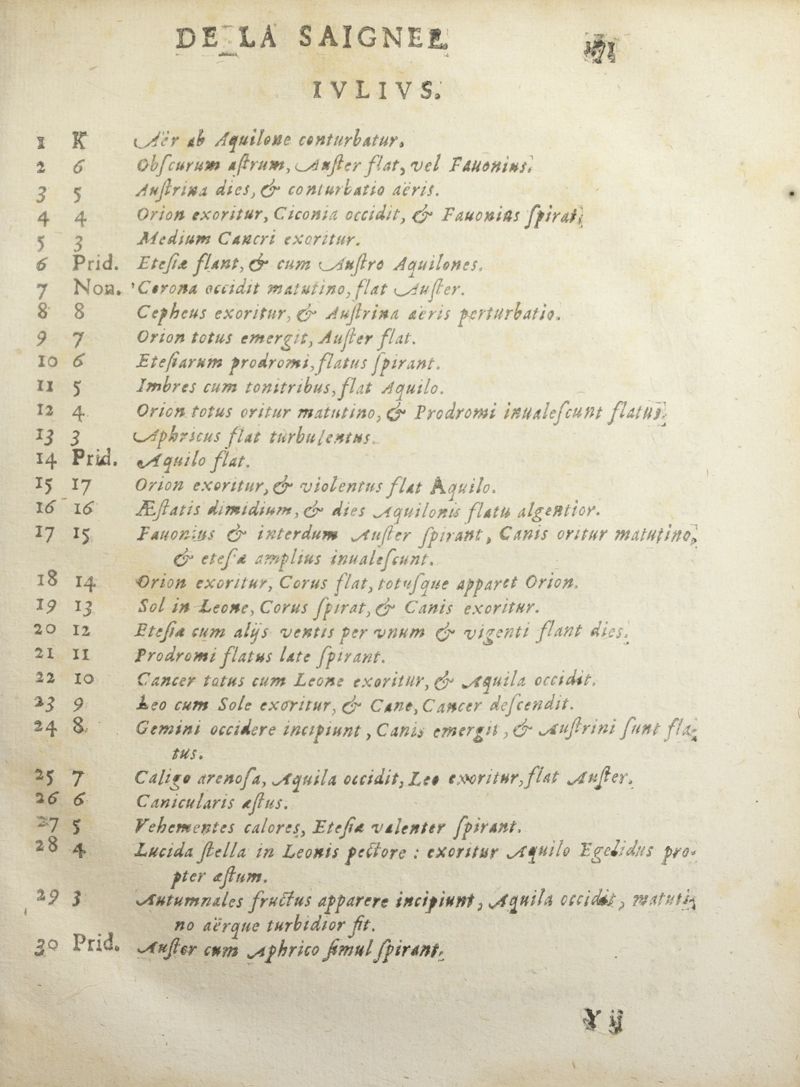 DE LA SAIGNEE. 171
IVLIVS.
1 K Aër ab Aquilone conturbatur.
2 6 Obſcurum aſtrum, Auſter flat, vel Fauonius.
3 5 Auſtrina dies, & conturbatio aëris.
4 4 Orion exoritur, Ciconia occidit, & Fauonius ſpirat.
5 3 Medium Cancri exoritur.
6 Prid. Eteſiæ flant, & cum Auſtro Aquilones.
7 Non. Corona occidit matutino, flat Auſter.
8 8 Cepheus exoritur, & Auſtrina aëris perturbatio.
9 7 Orion totus emergit, Auſter flat.
10 6 Eteſiarum prodromi, flatus ſpirant.
11 5 Imbres cum tonitribus, flat Aquilo.
12 4 Orion totus oritur matutino, & Prodromi inualeſcunt flatus.
13 3 Aphricus flat turbulentus.
14 Prid. Aquilo flat.
15 17 Orion exoritur, & violentus flat Aquilo.
16 16 Æſtatis dimidium, & dies Aquilonis flatu algentior.
17 15 Fauonius & interdum Auſter ſpirant, Canis oritur matutino,
& eteſiæ amplius inualeſcunt.
18 14 Orion exoritur, Corus flat, totuſque apparet Orion.
19 13 Sol in Leone, Corus ſpirat, & Canis exoritur.
20 12 Eteſiæ cum alijs ventis per vnum & vigenti flant dies.
21 11 Prodromi flatus late ſpirant.
22 10 Cancer totus cum Leone exoritur, & Aquila occidit.
23 9 Leo cum Sole exoritur, & Cane, Cancer deſcendit.
24 8 Gemini occidere incipiunt, Canis emergit, & Auſtrini ſunt fla-
tus.
25 7 Caligo arenoſa, Aquila occidit, Leo exoritur, flat Auſter.
26 6 Canicularis æſtus.
27 5 Vehementes calores, Eteſiæ valenter ſpirant.
28 4 Lucida ſtella in Leonis pectore : exoritur Aquilo Egelidus pro-
pter æſtum.
29 3 Autumnales fructus apparere incipiunt, Aquila occidit, matuti-
no aërque turbidior fit.
30 Prid. Auſter cum Aphrico ſimul ſpirant.
Y ij